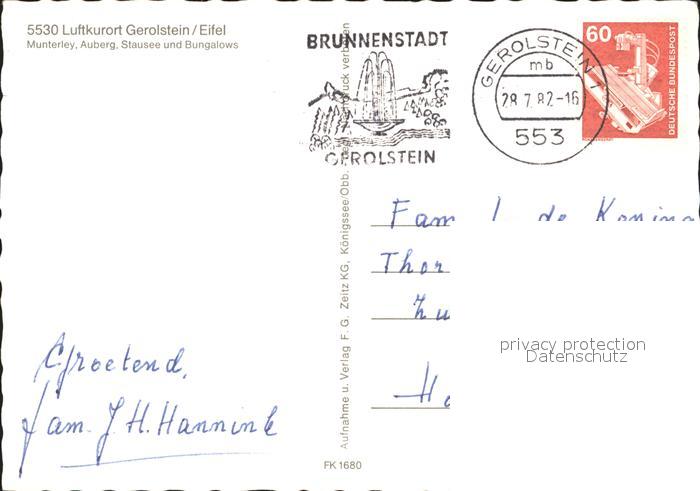 5530 Luftkurort Gerolstein/Eifel
Munterley, Auberg, Stausee und Bungalows
BRUNNENSTADT
GEROLSTEIN
GEROLSTEIN 1
mb
28.7.82-16
553
60
DEUTSCHE BUNDESPOST
Aufnahme u. Verlag F. G. Zeitz KG, Königssee/Obb.
Fam de Koning
Thor
Zu
privacy protection
Datenschutz
Groetend,
fam. J H. Hannink
FK 1680